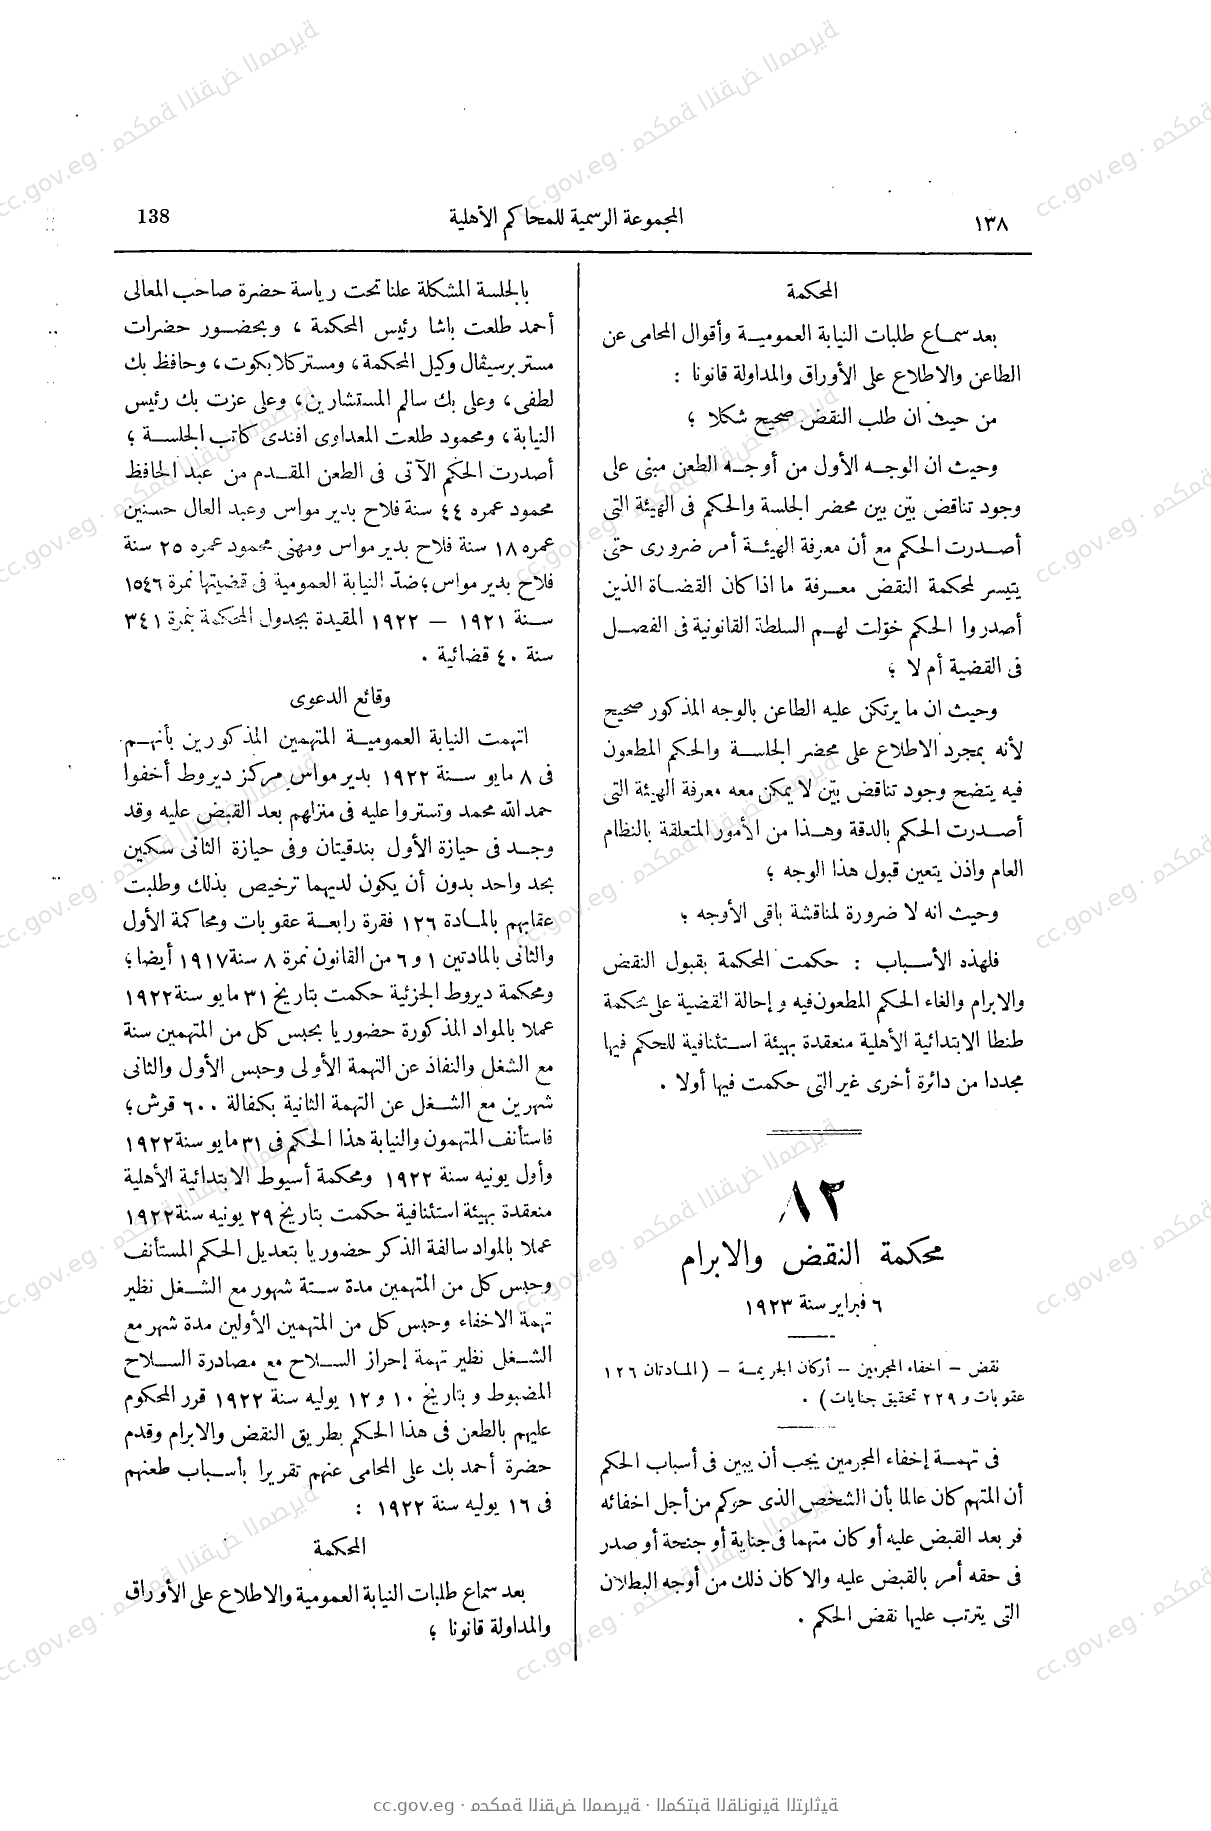 ١٣٨
المجموعة الرسمية للمحاكم الأهلية
138
المحكمة
بعد سماع طلبات النيابة العمومية وأقوال المحامى عن
الطاعن والاطلاع على الأوراق والمداولة قانونا :
من حيث ان طلب النقض صحيح شكلا ؛
وحيث ان الوجه الأول من أوجه الطعن مبنى على
وجود تناقض بيّن بين محضر الجلسة والحكم فى الهيئة التى
أصدرت الحكم مع أن معرفة الهيئة أمر ضرورى حتى
يتيسر لمحكمة النقض معرفة ما اذا كان القضاة الذين
أصدروا الحكم خوّلت لهم السلطة القانونية فى الفصل
فى القضية أم لا ؛
وحيث ان ما يرتكن عليه الطاعن بالوجه المذكور صحيح
لأنه بمجرد الاطلاع على محضر الجلسة والحكم المطعون
فيه يتضح وجود تناقض بيّن لا يمكن معه معرفة الهيئة التى
أصدرت الحكم بالدقة وهذا من الأمور المتعلقة بالنظام
العام واذن يتعين قبول هذا الوجه ؛
وحيث انه لا ضرورة لمناقشة باقى الأوجه ؛
فلهذه الأسباب : حكمت المحكمة بقبول النقض
والابرام والغاء الحكم المطعون فيه وإحالة القضية على محكمة
طنطا الابتدائية الأهلية منعقدة بهيئة استئنافية للحكم فيها
مجددا من دائرة أخرى غير التى حكمت فيها أولا .
٨٢
محكمة النقض والابرام
٦ فبراير سنة ١٩٢٣
نقض – اخفاء المجرمين – أركان الجريمة – (المادتان ١٢٦
عقوبات و ٢٢٩ تحقيق جنايات) .
فى تهمة إخفاء المجرمين يجب أن يبين فى أسباب الحكم
أن المتهم كان عالما بأن الشخص الذى حوكم من أجل اخفائه
فر بعد القبض عليه أو كان متهما فى جناية أو جنحة أو صدر
فى حقه أمر بالقبض عليه والا كان ذلك من أوجه البطلان
التى يترتب عليها نقض الحكم .
بالجلسة المشكلة علنا تحت رياسة حضرة صاحب المعالى
أحمد طلعت باشا رئيس المحكمة ، وبحضور حضرات
مستر برسيڤال وكيل المحكمة، ومستر كلابكوت، وحافظ بك
لطفى، وعلى بك سالم المستشارين، وعلى عزت بك رئيس
النيابة، ومحمود طلعت المعداوى افندى كاتب الجلسة ؛
أصدرت الحكم الآتى فى الطعن المقدم من عبد الحافظ
محمود عمره ٤٤ سنة فلاح بدير مواس وعبد العال حسنين
عمره ١٨ سنة فلاح بدير مواس ومهنى محمود عمره ٢٥ سنة
فلاح بدير مواس؛ ضدّ النيابة العمومية فى قضيتها نمرة ١٥٤٦
سنة ١٩٢١ – ١٩٢٢ المقيدة بجدول المحكمة بنمرة ٣٤١
سنة ٤٠ قضائية .
وقائع الدعوى
اتهمت النيابة العمومية المتهمين المذكورين بأنهم
فى ٨ مايو سنة ١٩٢٢ بدير مواس مركز ديروط أخفوا
حمد الله محمد وتستروا عليه فى منزلهم بعد القبض عليه وقد
وجد فى حيازة الأول بندقيتان وفى حيازة الثانى سكين
بحد واحد بدون أن يكون لديهما ترخيص بذلك وطلبت
عقابهم بالمادة ١٢٦ فقرة رابعة عقوبات ومحاكمة الأول
والثانى بالمادتين ١ و ٦ من القانون نمرة ٨ سنة ١٩١٧ أيضا؛
ومحكمة ديروط الجزئية حكمت بتاريخ ٣١ مايو سنة ١٩٢٢
عملا بالمواد المذكورة حضوريا بحبس كل من المتهمين سنة
مع الشغل والنفاذ عن التهمة الأولى وحبس الأول والثانى
شهرين مع الشغل عن التهمة الثانية بكفالة ٦٠٠ قرش؛
فاستأنف المتهمون والنيابة هذا الحكم فى ٣١ مايو سنة ١٩٢٢
وأول يونيه سنة ١٩٢٢ ومحكمة أسيوط الابتدائية الأهلية
منعقدة بهيئة استئنافية حكمت بتاريخ ٢٩ يونيه سنة ١٩٢٢
عملا بالمواد سالفة الذكر حضوريا بتعديل الحكم المستأنف
وحبس كل من المتهمين مدة ستة شهور مع الشغل نظير
تهمة الاخفاء وحبس كل من المتهمين الأولين مدة شهر مع
الشغل نظير تهمة إحراز السلاح مع مصادرة السلاح
المضبوط وبتاريخ ١٠ و ١٢ يوليه سنة ١٩٢٢ قرر المحكوم
عليهم بالطعن فى هذا الحكم بطريق النقض والابرام وقدم
حضرة أحمد بك على المحامى عنهم تقريرا بأسباب طعنهم
فى ١٦ يوليه سنة ١٩٢٢ :
المحكمة
بعد سماع طلبات النيابة العمومية والاطلاع على الأوراق
والمداولة قانونا ؛
cc.gov.eg · ةمكحم ضقنلا ةيرصملا · ةبتكملا ةينوناقلا ةيثارتلا